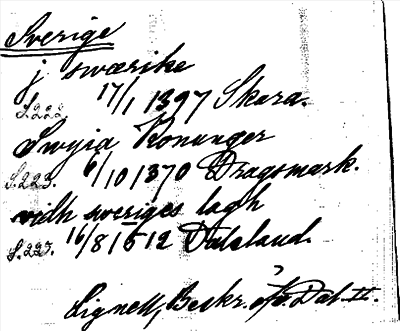 Sverige
j swærike
S.222. 17/1 1397 Skara.
Swyia Konunger
S.223. 6/10 1370 Dragsmark.
widh sweriges lagh
S.223. 16/8 1512 Dalsland.
Lignell, Beskr. Dal. II.